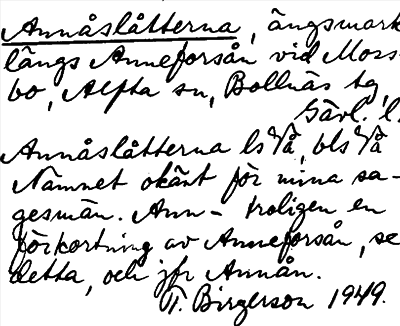 Annåslåtterna, ängsmark
längs Anneforsån vid Moss-
bo, Alfta sn, Bollnäs tg,
Gävl. l.
Annåslåtterna ls 7/8 å, bls 7/8 å
Namnet okänt för mina sa-
gesmän. Ann- troligen en
förkortning av Anneforsån, se
detta, och jfr Annån.
T. Birgerson 1949.